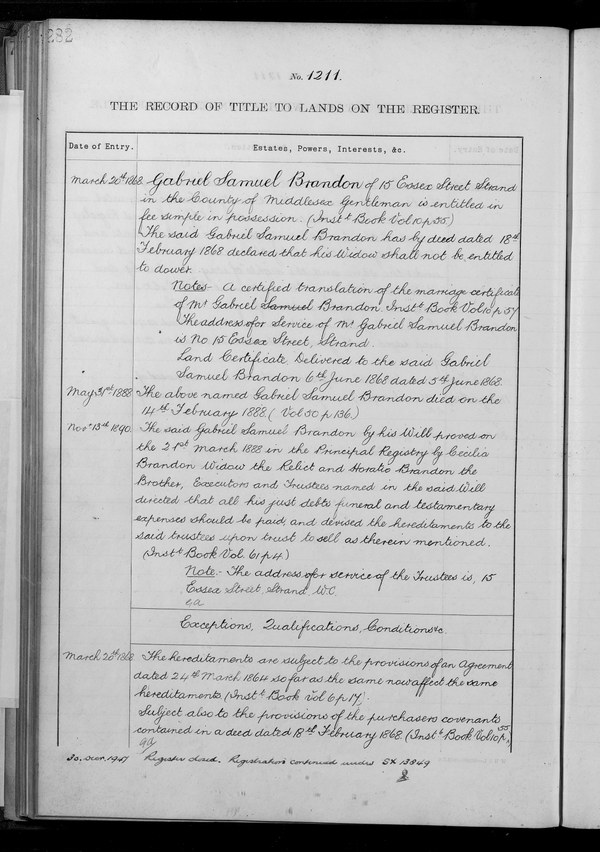 282
No. 1211.
THE RECORD OF TITLE TO LANDS ON THE REGISTER.
Date of Entry.
Estates, Powers, Interests, &c.
March 20th 1868. Gabriel Samuel Brandon of 15 Essex Street Strand
in the County of Middlesex Gentleman is entitled in
fee simple in possession. (Instt Book Vol 10 p 55)
The said Gabriel Samuel Brandon has by deed dated 18th
February 1868 declared that his Widow shall not be entitled
to dower.
Notes - A certified translation of the marriage certificate
of Mr Gabriel Samuel Brandon, Instt Book Vol 10 p 57
The address for Service of Mr Gabriel Samuel Brandon
is No 15 Essex Street, Strand.
Land Certificate Delivered to the said Gabriel
Samuel Brandon 6th June 1868 dated 5th June 1868.
May 31st 1888. The above named Gabriel Samuel Brandon died on the
14th February 1888. (Vol 50 p 136.)
Novr 13th 1890. The said Gabriel Samuel Brandon by his Will proved on
the 21st March 1888 in the Principal Registry by Cecilia
Brandon Widow the Relict and Horatio Brandon the
Brother, Executors and Trustees named in the said Will
directed that all his just debts funeral and testamentary
expenses should be paid, and devised the hereditaments to the
said trustees upon trust to sell as therein mentioned.
(Instt Book Vol. 61 p 4.)
Note. - The address for service of the Trustees is, 15
Essex Street, Strand, W.C.
Exceptions, Qualifications, Conditions &c.
March 20th 1868. The hereditaments are subject to the provisions of an Agreement
dated 24th March 1864 so far as the same now affect the same
hereditaments. (Instt Book Vol 6 p 17).
Subject also to the provisions of the purchasers covenants
contained in a deed dated 18th February 1868. (Instt Book Vol 10 p 55)
30. Decr. 1947 Register closed. Registration continued under SX 13849